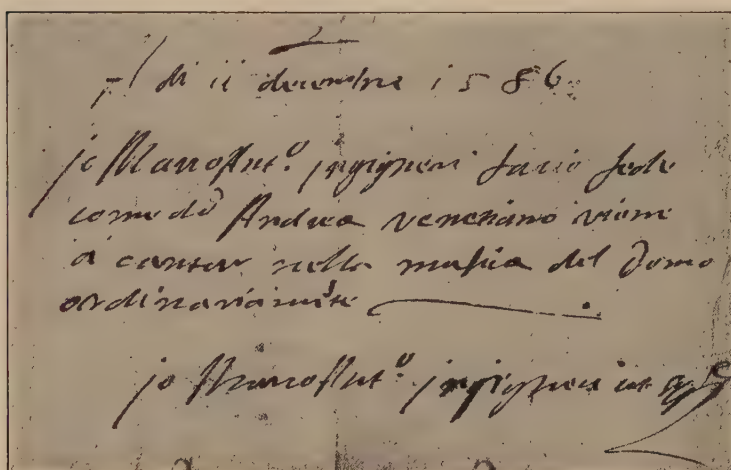 di 11 decembre 1586
jo Marc'Ant.o jngignieri faccio fede
come do Andrea venetiano viene
a cantar nella musica del Domo
ordinariamte
jo Marc'Ant.o jngignieri